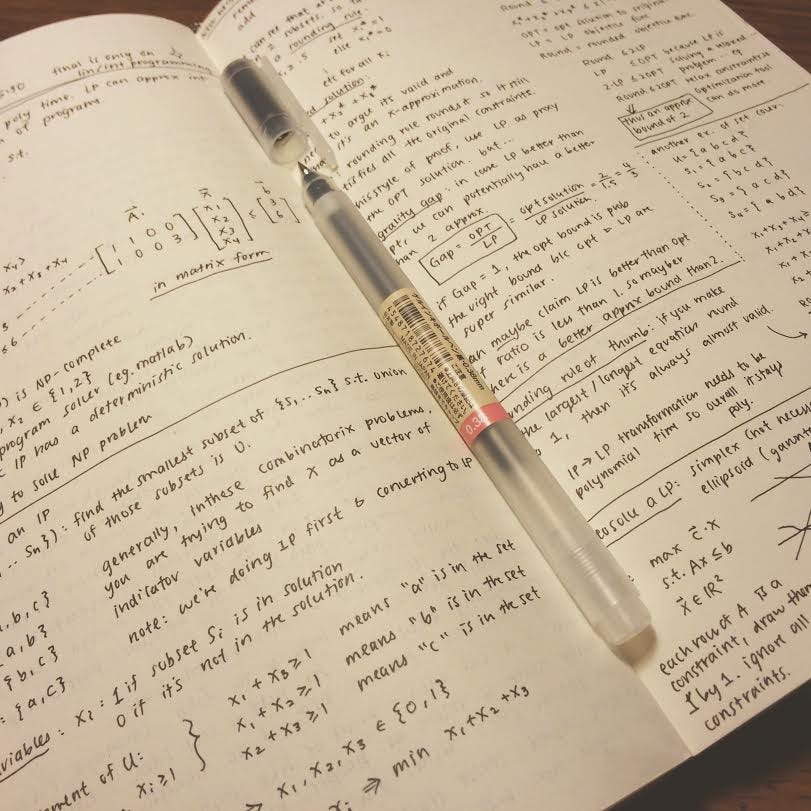 final is only on
lin/int programming
poly time, LP can approx
of programs.
s.t.
A
x
b
[1 1 0 0] [x1] ≤ [3]
[1 0 0 3] [x2] [6]
x3
x4
x2 + x3 + x4
3
≤ 6
in matrix form
is NP-complete
x2 ∈ {1,2}
program solver (eg. matlab)
IP has a deterministic solution.
to solve NP problem
an IP
sn}): find the smallest subset of {s1,...sn} s.t. union
of those subsets is U.
generally, in these combinatorix problems,
you are trying to find X as a vector of
indicator variables
note: we're doing IP first & converting to LP
a,b,c}
a,b}
{b,c}
= {a,c}
variables: xi = 1 if subset Si is in solution
0 if it's not in the solution.
ment of U:
xi ≥ 1
x1 + x3 ≥ 1 means "a" is in the set
x1 + x2 ≥ 1 means "b" is in the set
x2 + x3 ≥ 1 means "c" is in the set
x1, x2, x3 ∈ {0,1}
xi ⇒ min x1 + x2 + x3
add
2 subsets. so
rounding rule
set xi* = 1
else xi* = 0
etc for all xi
solution:
to argue its valid and
it's an x-approximation.
rounding rule rounds it so it still
satisfies all the original constraints.
this style of proof, use LP as proxy
the OPT solution. but...
grality gap: in case LP better than
opt, we can potentially have a better
than 2 approx.
Gap = OPT/LP = opt solution/LP solution = 2/1.5 = 4/3
if Gap = 1, the opt bound is prob
the right bound b/c opt + LP are
super similar.
an maybe claim LP is better than opt
if ratio is less than 1. so maybe
there is a better approx bound than 2.
nding rule of thumb: if you make
the largest/longest equation round
to 1, then it's always almost valid.
IP → LP transformation needs to be
polynomial time so overall it stays
poly.
to solve a LP: simplex (not neces
ellipsoid (gaunt
max c·x
s.t. Ax ≤ b
x ∈ ℝ²
each row of A is a
constraint, draw them
1 by 1. ignore all
constraints.
OPT = opt solution to origina
LP = LP objective func
Round = rounded objective func
Round ≤ 2LP
LP ≤ OPT because LP is
2LP ≤ 2OPT
Round ≤ 2OPT
relax constraints
optimization tool
can do more
thus an approx
bound of 2
another ex. of set cover.
U = {a b c d}
S1 = {a b c}
S2 = {b c d}
S3 = {a c d}
S4 = {a b d}
x1 + x3 +
x1 + x2 +
0.38